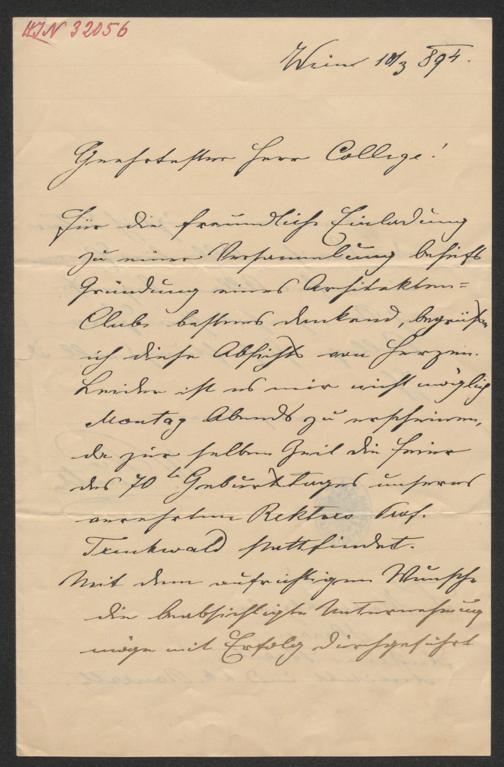 HIN 32056
Wien 18/3 894.
Geehrtester Herr College!
Für die freundliche Einladung
zu einer Versammlung behufs
Gründung eines Architekten-
Clubs bestens dankend, begrüße
ich diese Absicht von Herzen.
Leider ist es mir nicht möglich
Montag Abends zu erscheinen,
da zur selben Zeit die Feier
des 70ten Geburtstages unseres
verehrten Rektors Prof.
Trenkwald stattfindet.
Mit dem aufrichtigen Wunsche
die beabsichtigte Unternehmung
möge mit Erfolg durchgeführt